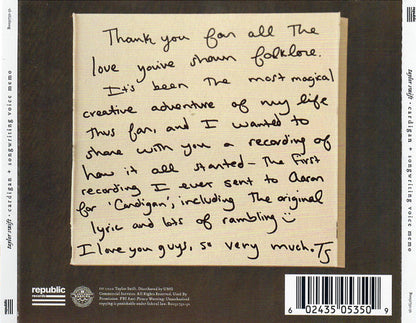 Thank you for all The
love you've shown folklore.
It's been the most magical
creative adventure of my life
thus far, and I wanted to
share with you a recording of
how it all started - The First
recording I ever sent to Aaron
for 'Cardigan', including The original
lyric and lots of rambling
I love you guys, so very much. TS
republic
records
taylor swift · cardigan + songwriting voice memo
taylor swift · cardigan + songwriting voice memo
6 02435 05350 9